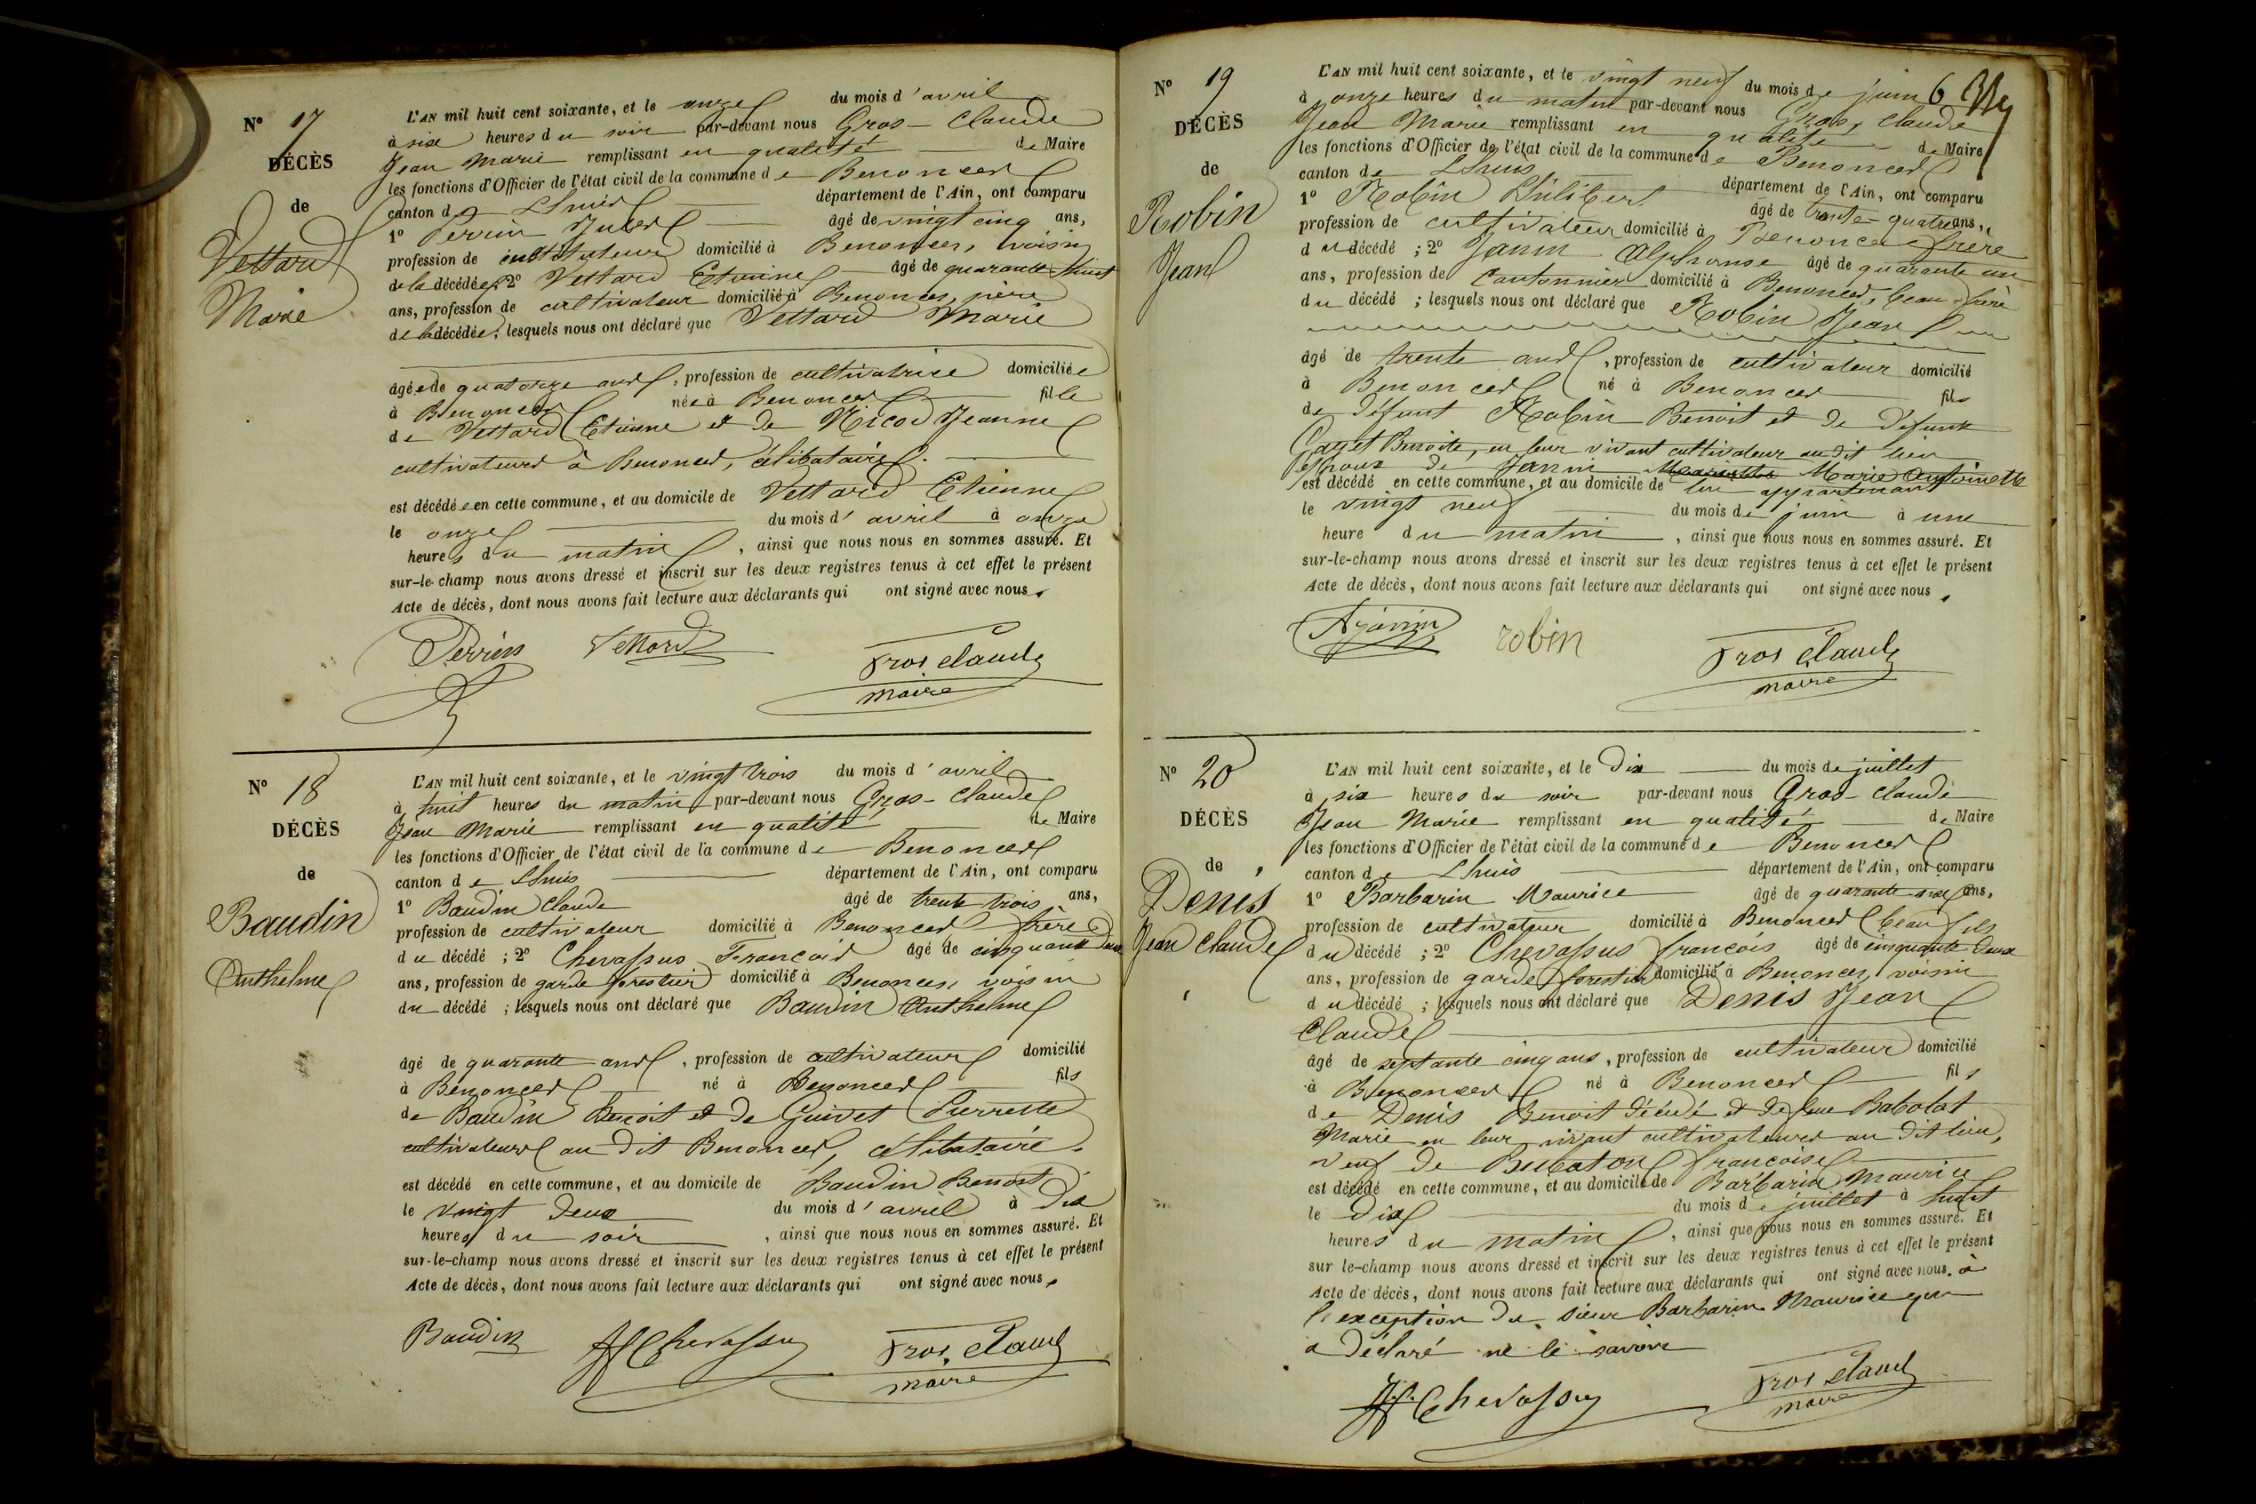 N° 17
DÉCÈS
de
Vettard
Marie
L'AN mil huit cent soixante, et le onze du mois d'avril
à six heures du soir par-devant nous Gros-Claude
Jean Marie remplissant en qualité de Maire
les fonctions d'Officier de l'état civil de la commune de Benonces
canton d Lhuis département de l'Ain, ont comparu
1° Perrin âgé de vingt cinq ans,
profession de instituteur domicilié à Benonces, voisin
de la décédée; 2° Vettard Etienne âgé de quarante huit
ans, profession de cultivateur domicilié à Benonces, père
de la décédée; lesquels nous ont déclaré que Vettard Marie
âgée de quatorze ans, profession de cultivatrice domiciliée
à Benonces née à Benonces fille
de Vettard Etienne et de Nicod Jeanne
cultivateurs à Benonces, célibataire.
est décédée en cette commune, et au domicile de Vettard Etienne
le onze du mois d'avril à onze
heures du matin, ainsi que nous nous en sommes assuré. Et
sur-le-champ nous avons dressé et inscrit sur les deux registres tenus à cet effet le présent
Acte de décès, dont nous avons fait lecture aux déclarants qui ont signé avec nous.
Perrin Vettard Gros Claude
maire
N° 18
DÉCÈS
de
Baudin
Anthelme
L'AN mil huit cent soixante, et le vingt trois du mois d'avril
à huit heures du matin par-devant nous Gros-Claude
Jean Marie remplissant en qualité de Maire
les fonctions d'Officier de l'état civil de la commune de Benonces
canton de Lhuis département de l'Ain, ont comparu
1° Baudin Claude âgé de trente trois ans,
profession de cultivateur domicilié à Benonces frère
du décédé; 2° Chevassus François âgé de cinquante deux
ans, profession de garde forestier domicilié à Benonces, voisin
du décédé; lesquels nous ont déclaré que Baudin Anthelme
âgé de quarante ans, profession de cultivateur domicilié
à Benonces né à Benonces fils
de Baudin Benoit et de Guivet Pierrette
cultivateurs au dit Benonces, célibataire.
est décédé en cette commune, et au domicile de Baudin Benoit
le vingt deux du mois d'avril à dix
heures du soir, ainsi que nous nous en sommes assuré. Et
sur-le-champ nous avons dressé et inscrit sur les deux registres tenus à cet effet le présent
Acte de décès, dont nous avons fait lecture aux déclarants qui ont signé avec nous.
Baudin Chevassus Gros Claude
maire
6
N° 19
DÉCÈS
de
Robin
Jean
L'AN mil huit cent soixante, et le vingt neuf du mois de juin
à onze heures du matin par-devant nous Gros, Claude
Jean Marie remplissant en qualité de Maire
les fonctions d'Officier de l'état civil de la commune de Benonces
canton de Lhuis département de l'Ain, ont comparu
1° Robin Philibert âgé de trente-quatre ans,
profession de cultivateur domicilié à Benonces frère
du décédé; 2° Janin Alphonse âgé de quarante un
ans, profession de Cantonnier domicilié à Benonces, beau-frère
du décédé; lesquels nous ont déclaré que Robin Jean
âgé de trente ans, profession de cultivateur domicilié
à Benonces né à Benonces fils
de défunt Robin Benoit et de défunte
Benoite, en leur vivant cultivateur audit lieu
époux de Janin Marie Antoinette
est décédé en cette commune, et au domicile de lui appartenant
le vingt neuf du mois de juin à une
heure du matin, ainsi que nous nous en sommes assuré. Et
sur-le-champ nous avons dressé et inscrit sur les deux registres tenus à cet effet le présent
Acte de décès, dont nous avons fait lecture aux déclarants qui ont signé avec nous.
A Janin robin Gros Claude
maire
N° 20
DÉCÈS
de
Denis
Jean Claude
L'AN mil huit cent soixante, et le dix du mois de juillet
à six heures du soir par-devant nous Gros-Claude
Jean Marie remplissant en qualité de Maire
les fonctions d'Officier de l'état civil de la commune de Benonces
canton de Lhuis département de l'Ain, ont comparu
1° Barbarin Maurice âgé de quarante-six ans,
profession de cultivateur domicilié à Benonces beau fils
du décédé; 2° Chevassus françois âgé de cinquante-deux
ans, profession de garde forestier domicilié à Benonces, voisin
du décédé; lesquels nous ont déclaré que Denis Jean
Claude
âgé de septante cinq ans, profession de cultivateur domicilié
à Benonces né à Benonces fils
de Denis Benoit décédé et de feue Babolat
Marie en leur vivant cultivateurs au dit lieu,
veuf de françoise
est décédé en cette commune, et au domicile de Barbarin Maurice
le dix du mois de juillet à huit
heures du matin, ainsi que nous nous en sommes assuré. Et
sur le-champ nous avons dressé et inscrit sur les deux registres tenus à cet effet le présent
Acte de décès, dont nous avons fait lecture aux déclarants qui ont signé avec nous. à
l'exception du sieur Barbarin Maurice qui
a déclaré ne le savoir
Chevassus Gros Claude
maire